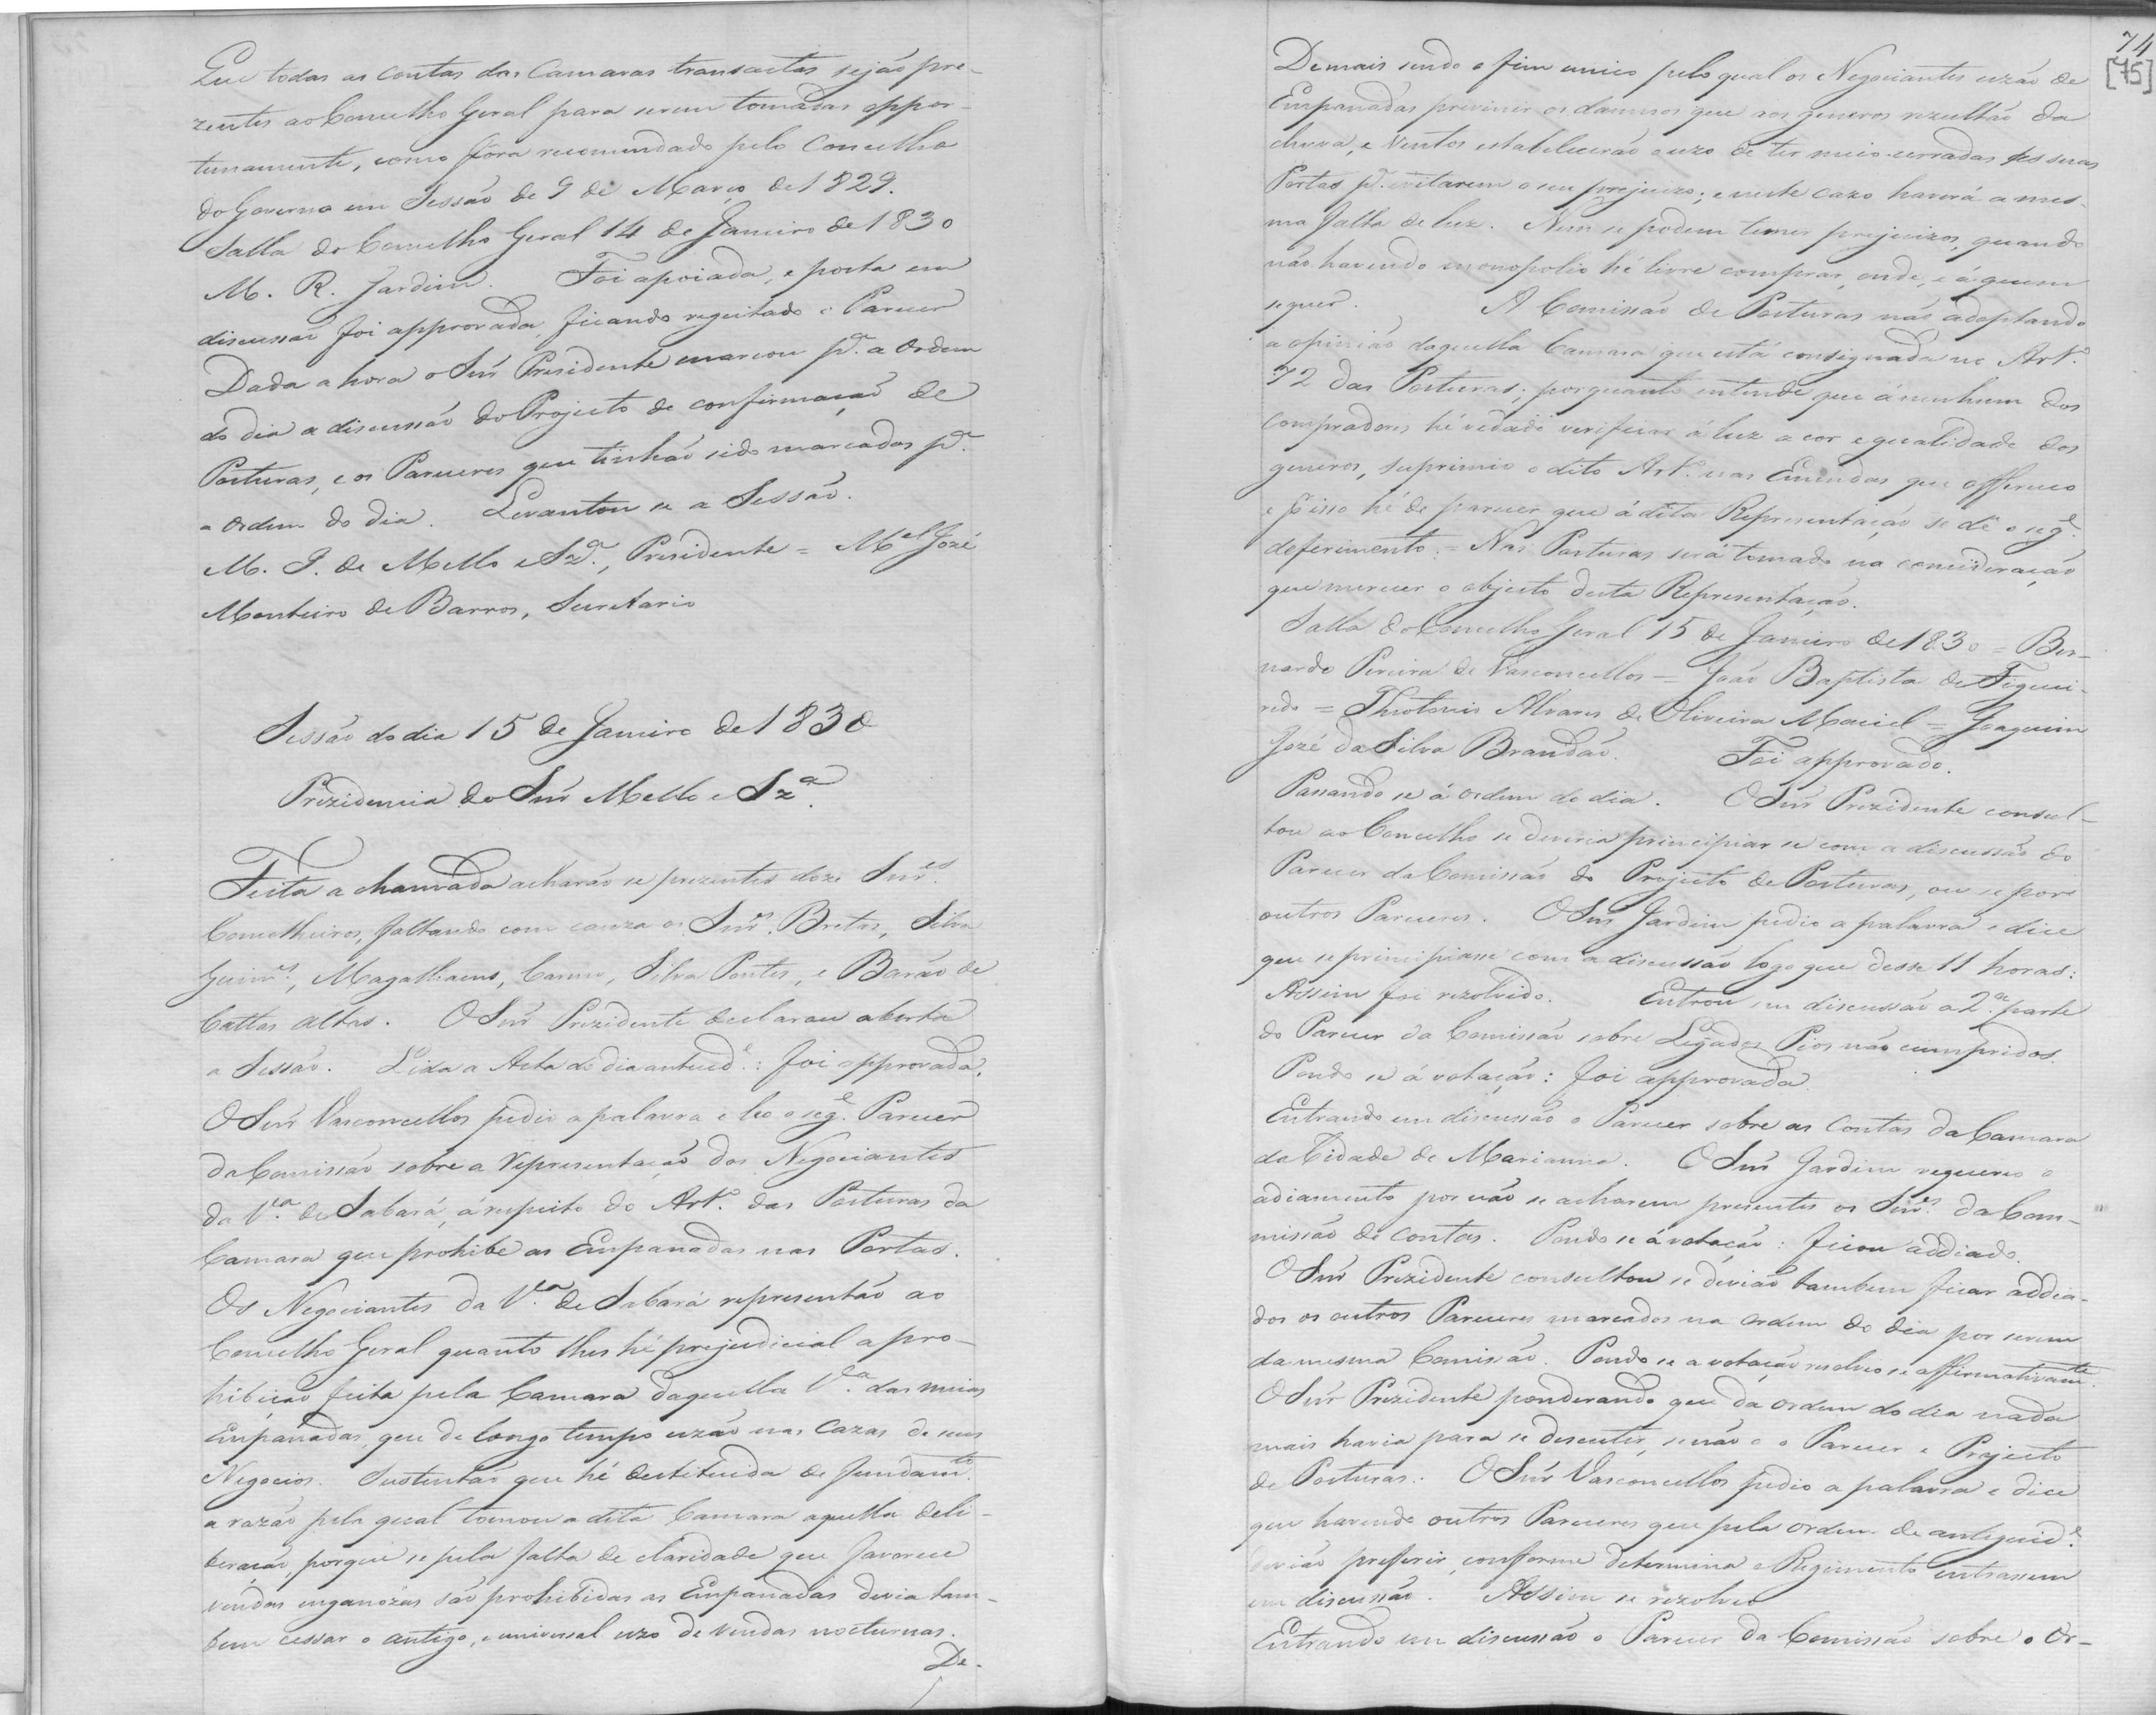 Que todas as contas das Camaras transactas sejão pre-
zentes ao Conselho Geral para serem tomadas oppor-
tunamente, como fôra recomendado pelo Conselho
do Governo em Sessão de 9 de Março de 1829.
Salla do Conselho Geral 14 de Janeiro de 1830
M. R. Jardim. Foi apoiada, e posta em
discussão foi approvada, ficando regeitado o Parecer
Dada a hora o Snr̃ Presidente marcou pª. a Ordem
do dia a discussão do Projecto de confirmação de
Posturas, e os Pareceres que tinhão sido marcados pª.
a ordem do dia. Levantou se a Sessão.
M. I. de Mello e Szª., Presidente = Mel José
Monteiro de Barros, Secretario
Sessão do dia 15 de Janeiro de 1830
Prezidencia do Snr̃ Mello e Szª.
Feita a chamada acharão se prezentes doze Snr̃es.
Conselheiros, faltando com cauza os Snr̃es. Bretas, Silva
Guimes., Magalhaens, Carmo, Silva Pontes, e Barão de
Cattas Altas. O Snr̃ Prezidente declarou aberta
a Sessão. Lida a Acta do dia anteced.e: foi approvada.
O Snr̃ Vasconcellos pedio a palavra e leo o seg.e Parecer
da Comissão sobre a representação dos Negociantes
da Vª. de Sabará, á respeito do Art.º das Posturas da
Camara que prohibe as Empanadas nas Portas.
Os Negociantes da Vª. de Sabará representão ao
Conselho Geral quanto lhes hé prejudicial a pro-
hibição feita pela Camara daquella Vª. das meias
Empanadas, que de longo tempo uzão nas Cazas de seus
Negocios. Sustentão que hé destituida de fundamto.
a razão pela qual tomou a dita Camara aquella deli-
beração, porque se pela falta de claridade que favorece
vendas enganózas são prohibidas as Empanadas devia tam-
bem cessar o antigo, e universal uzo de vendas nocturnas.
De-
74
[75]
Demais sendo o fim unico pelo qual os Negociantes uzão de
Empanadas prevenir os damnos que aos generos rezultão da
chuva, e ventos estabelecerão o uzo de ter meio cerradas as suas
Portas pª. evitarem o seu prejuizo; e neste cazo haverá a mes-
ma falta de luz. Nem se podem temer prejuizos, quando
não havendo monopolio hé livre comprar, onde, e á quem
se quer. A Comissão de Posturas não adoptando
a opinião daquella Camara que está consignada no Art.º
72 das Posturas; porquanto entende que á nenhum dos
Compradores hé vedado verificar á luz a cor e qualidade dos
generos, suprimio o dito Art.º nas Emendas que offereceo
e p̃ isso hé de parecer que á dita Representação se dê o seg.e
deferimento: = Nas Posturas será tomado na consideração
que merecer o objecto desta Representação.
Salla do Conselho Geral 15 de Janeiro de 1830 = Ber-
nardo Pereira de Vasconcellos = João Baptista de Figuei-
redo = Theotonio Alvares de Oliveira Maciel = Joaquim
José da Silva Brandão. Foi approvado.
Passando se á ordem do dia. O Snr̃ Prezidente consul-
tou ao Conselho se deveria principiar se com a discussão do
Parecer da Comissão do Projecto de Posturas, ou se por
outros Pareceres. O Snr̃ Jardim pedio a palavra e dice
que se principiasse com a discussão logo que desse 11 horas:
Assim foi rezolvido. Entrou em discussão a 2.ª parte
do Parecer da Comissão sobre Legados Pios não cumpridos.
Pondo se á votação: foi approvada.
Entrando em discussão o Parecer sobre as Contas da Camara
da Cidade de Marianna. O Snr̃ Jardim requereo o
adiamento por não se acharem presentes os Snr̃es. da Com-
missão de Contas. Pondo se á votação: ficou addiado.
O Snr̃ Prezidente consultou se devião tambem ficar addia-
dos os outros Pareceres marcados na ordem do dia por serem
da mesma Comissão. Pondo se a votação resolveo se affirmativamte.
O Snr̃ Prezidente ponderando que da ordem do dia nada
mais havia para se descutir, senão o Parecer e Projecto
de Posturas. O Snr̃ Vasconcellos pedio a palavra e dice
que havendo outros Pareceres que pela ordem de antiguid.e
devião preferir, conforme determina o Regimento entrassem
em discussão. Assim se rezolveo
Entrando em discussão o Parecer da Comissão sobre o Or-